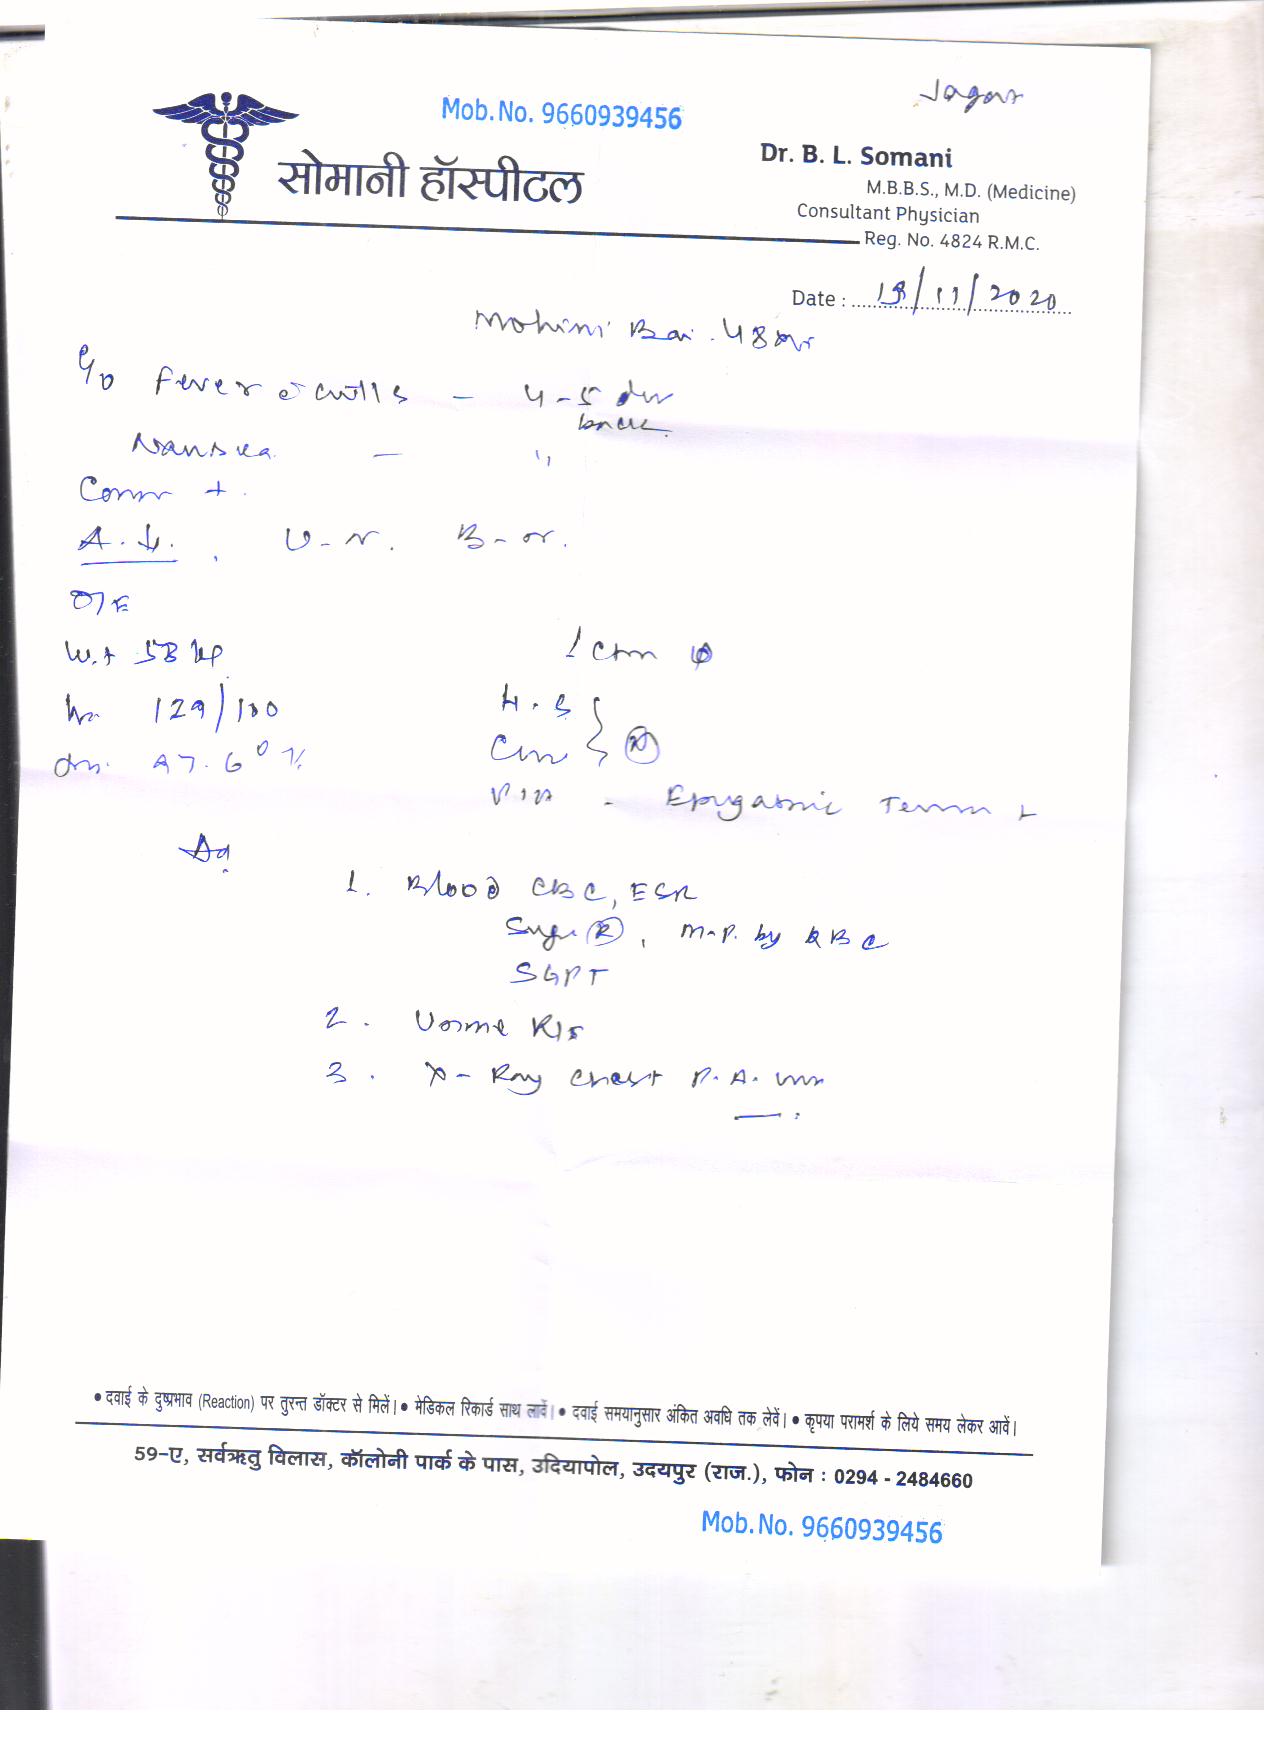 Mob.No. 9660939456
सोमानी हॉस्पीटल
Dr. B. L. Somani
M.B.B.S., M.D. (Medicine)
Consultant Physician
Reg. No. 4824 R.M.C.
Date : 19/11/2020
Mohini Bai . 48
C/o Fever c chills - 4-5
Nausea - "
+
A. ↓. U-N. B-N.
O/E
Wt 58 kg
129/100
97.6°F
H.S
P/A - Epigastric Tenderness +
Adv
1. Blood CBC, ESR
Sugar (R), M.P. by QBC
SGPT
2. Urine R/E
3. X-Ray Chest P.A. view
• दवाई के दुष्प्रभाव (Reaction) पर तुरन्त डॉक्टर से मिलें। • मेडिकल रिकार्ड साथ लावें। • दवाई समयानुसार अंकित अवधि तक लेवें। • कृपया परामर्श के लिये समय लेकर आवें।
59-ए, सर्वऋतु विलास, कॉलोनी पार्क के पास, उदियापोल, उदयपुर (राज.), फोन : 0294 - 2484660
Mob.No. 9660939456